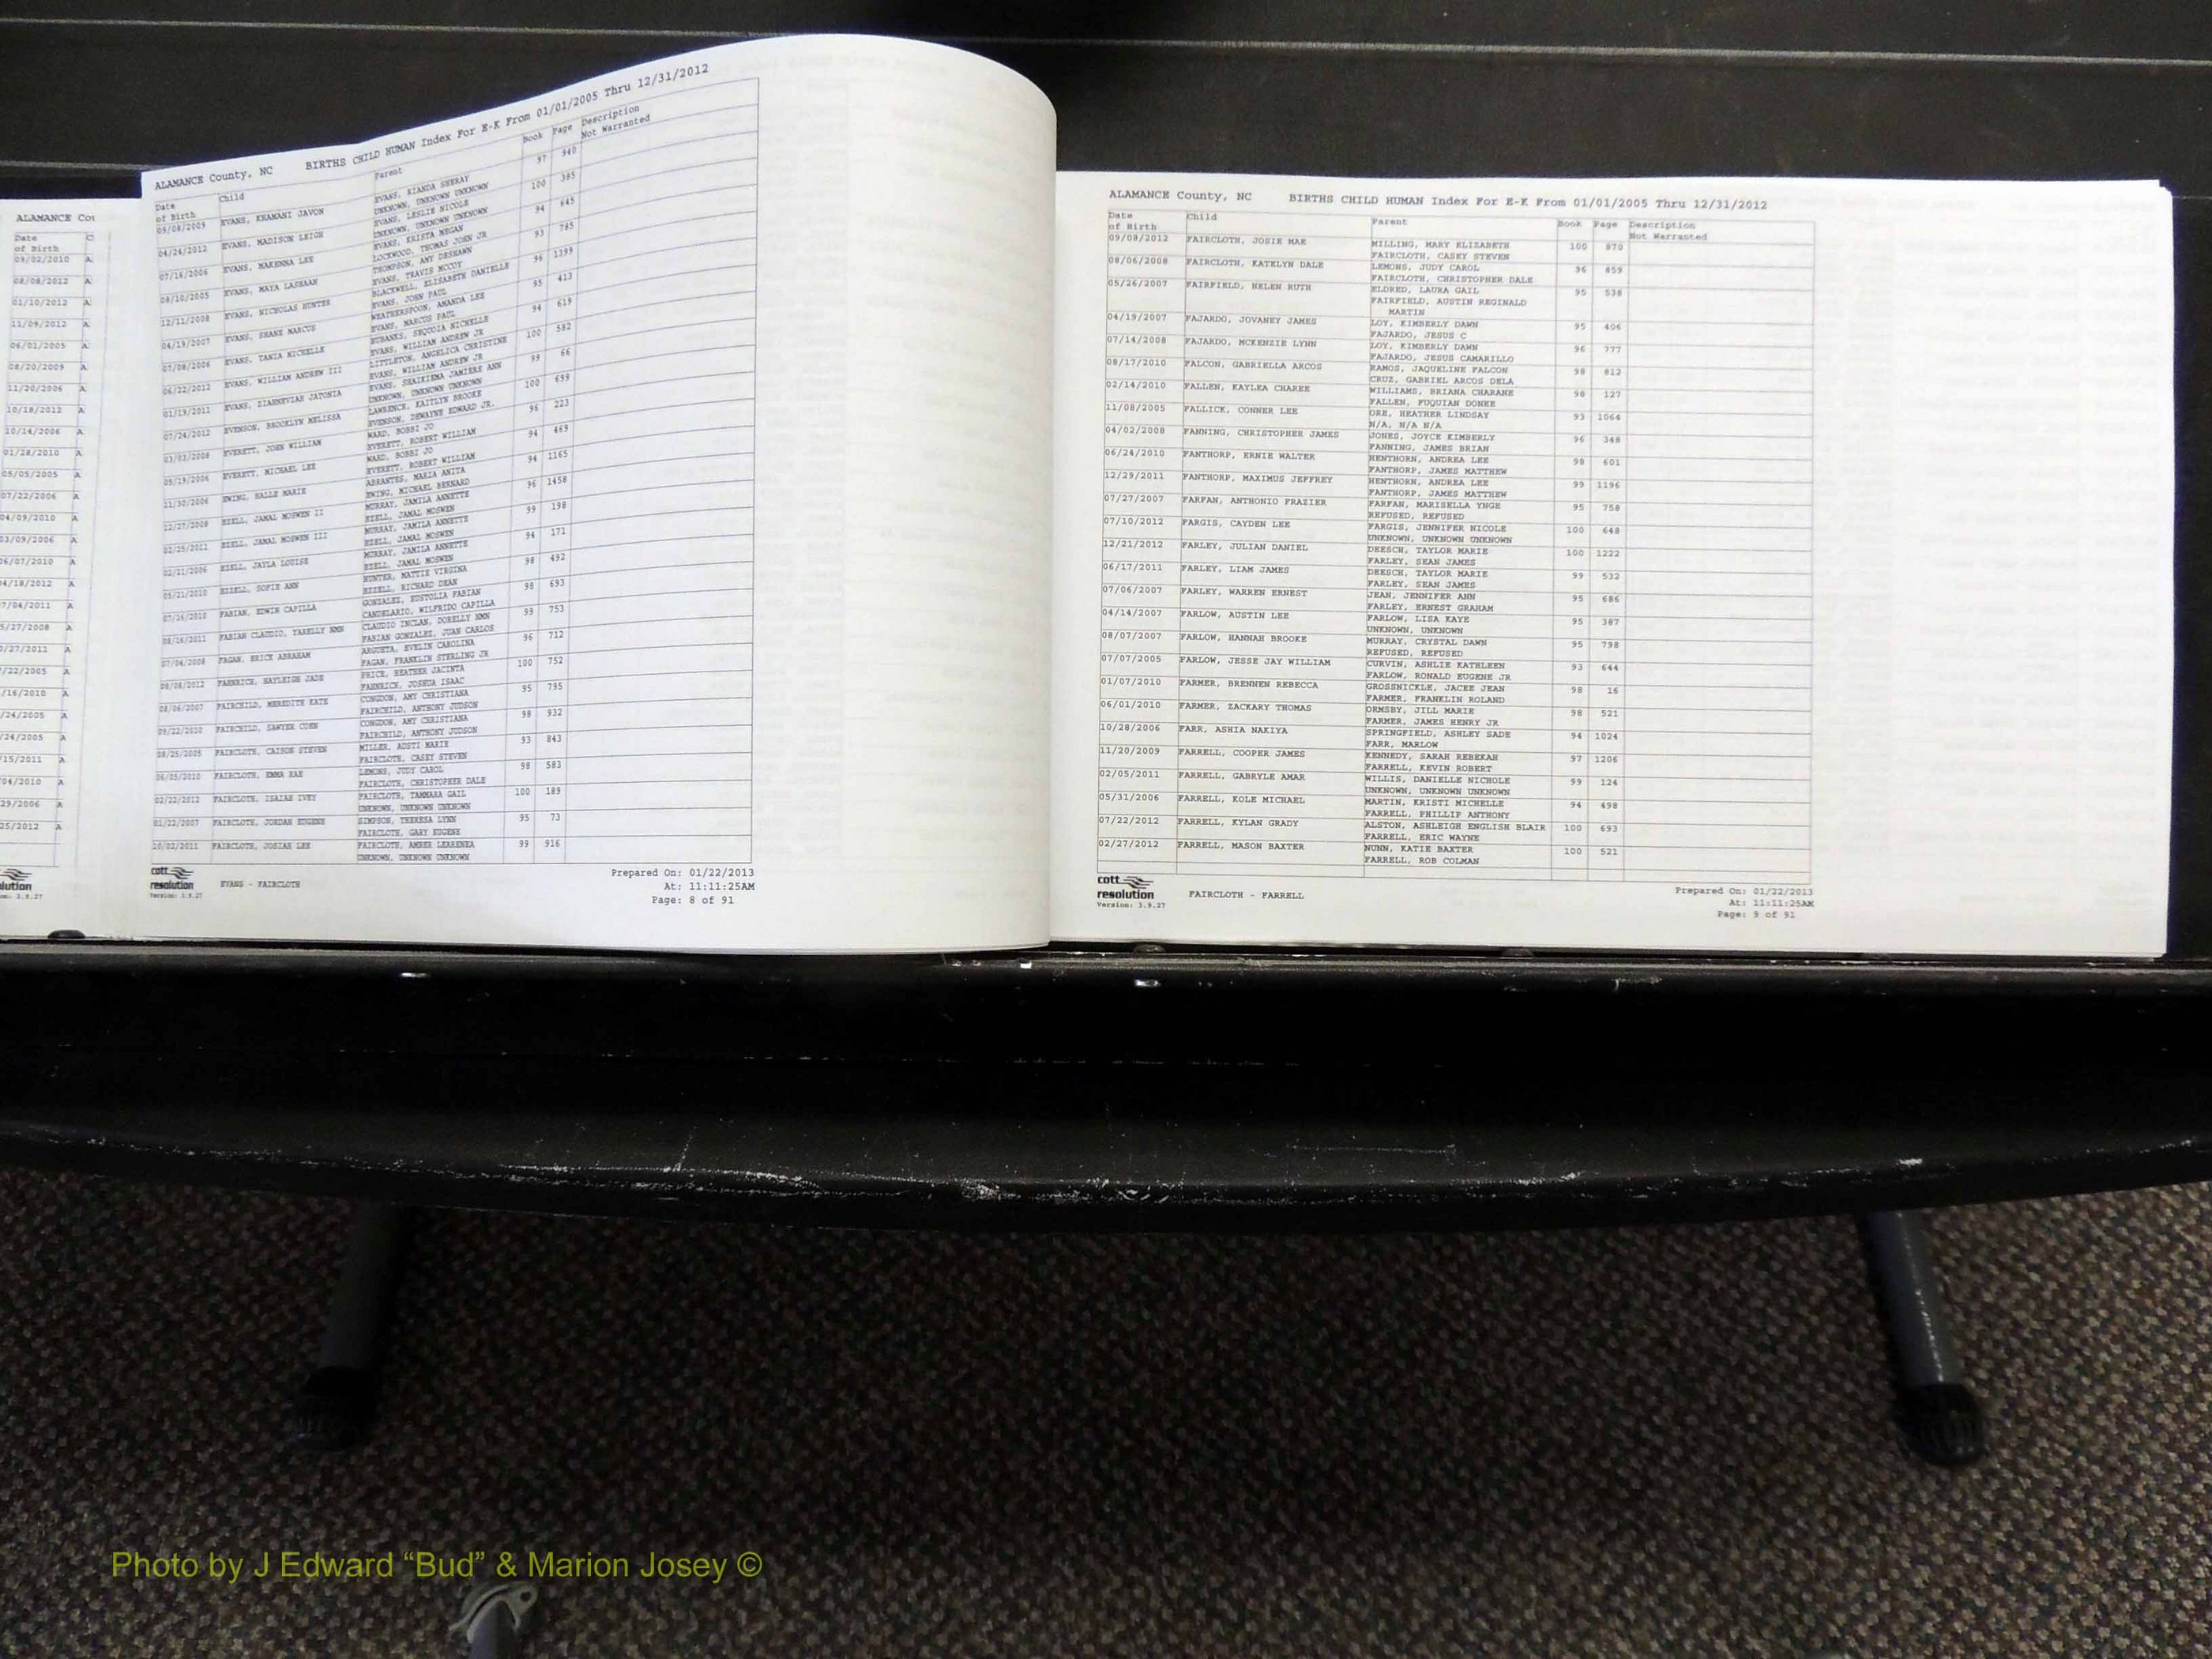 ALAMANCE Cou
Date C
of Birth
09/02/2010 A
08/08/2012 A
01/10/2012 A
11/09/2012 A
06/01/2005 A
08/20/2009 A
11/20/2006 A
10/18/2012 A
10/14/2006 A
01/28/2010 A
05/05/2005 A
07/22/2006 A
04/09/2010 A
03/09/2006 A
06/07/2010 A
4/18/2012 A
7/04/2011 A
5/27/2008 A
0/27/2011 A
/22/2005 A
/16/2010 A
/24/2005 A
/24/2005 A
/15/2011 A
04/2010 A
29/2006 A
25/2012 A
lution
ALAMANCE County, NC BIRTHS CHILD HUMAN Index For E-K From 01/01/2005 Thru 12/31/2012
Date Child Parent Book Page Description
of Birth Not Warranted
09/08/2009 EVANS, KHAMANI JAVON EVANS, KIANDA SHERAY 97 940
UNKNOWN, UNKNOWN UNKNOWN
04/24/2012 EVANS, MADISON LEIGH EVANS, LESLIE NICOLE 100 385
UNKNOWN, UNKNOWN UNKNOWN
07/16/2006 EVANS, MAKENNA LEE EVANS, KRISTA MEGAN 94 645
LOCKWOOD, THOMAS JOHN JR
08/10/2005 EVANS, MAYA LASHAAN THOMPSON, AMY DESHAWN 93 785
EVANS, TRAVIS MCCOY
12/11/2008 EVANS, NICHOLAS HUNTER BLACKWELL, ELISABETH DANIELLE 96 1399
EVANS, JOHN PAUL
04/19/2007 EVANS, SHANE MARCUS WEATHERSPOON, AMANDA LEE 95 413
EVANS, MARCUS PAUL
07/08/2006 EVANS, TANIA NICHELLE EUBANKS, SEQUOIA NICHELLE 94 619
EVANS, WILLIAM ANDREW JR
06/22/2012 EVANS, WILLIAM ANDREW III LITTLETON, ANGELICA CHRISTINE 100 582
EVANS, WILLIAM ANDREW JR
01/19/2011 EVANS, ZIAHNEVIAH JATONIA EVANS, SHAIKIEMA JAMIERE ANN 99 66
UNKNOWN, UNKNOWN UNKNOWN
07/24/2012 EVENSON, BROOKLYN MELISSA LAWRENCE, KAITLYN BROOKE 100 699
EVENSON, DEWAYNE EDWARD JR.
03/03/2008 EVERETT, JOHN WILLIAM WARD, BOBBI JO 96 223
EVERETT, ROBERT WILLIAM
05/19/2006 EVERETT, MICHAEL LEE WARD, BOBBI JO 94 469
EVERETT, ROBERT WILLIAM
11/30/2006 EWING, HALLE MARIE ABRANTES, MARIA ANITA 94 1165
EWING, MICHAEL BERNARD
12/27/2008 EZELL, JAMAL MOSWEN II MURRAY, JAMILA ANNETTE 96 1458
EZELL, JAMAL MOSWEN
02/25/2011 EZELL, JAMAL MOSWEN III MURRAY, JAMILA ANNETTE 99 198
EZELL, JAMAL MOSWEN
02/21/2006 EZELL, JAYLA LOUISE MURRAY, JAMILA ANNETTE 94 171
EZELL, JAMAL MOSWEN
05/21/2010 EZZELL, SOFIE ANN HUNTER, MATTIE VIRGINA 98 492
EZZELL, RICHARD DEAN
07/16/2010 FABIAN, EDWIN CAPILLA GONZALEZ, EUSTOLIA FABIAN 98 693
CANDELARIO, WILFRIDO CAPILLA
08/16/2011 FABIAN CLAUDIO, YARELLY NMN CLAUDIO INCLAN, DORELLY NMN 99 753
FABIAN GONZALEZ, JUAN CARLOS
07/04/2008 FAGAN, ERICK ABRAHAM ARGUETA, EVELIN CAROLINA 96 712
FAGAN, FRANKLIN STERLING JR
08/08/2012 FAHNRICH, HAYLEIGH JADE PRICE, HEATHER JACINTA 100 752
FAHNRICH, JOSHUA ISAAC
08/06/2007 FAIRCHILD, MEREDITH KATE CONGDON, AMY CHRISTIANA 95 795
FAIRCHILD, ANTHONY JUDSON
09/22/2010 FAIRCHILD, SAWYER COEN CONGDON, AMY CHRISTIANA 98 932
FAIRCHILD, ANTHONY JUDSON
08/25/2005 FAIRCLOTH, CAISON STEVEN MILLER, AUSTI MARIE 93 843
FAIRCLOTH, CASEY STEVEN
06/05/2010 FAIRCLOTH, EMMA RAE LEMONS, JUDY CAROL 98 583
FAIRCLOTH, CHRISTOPHER DALE
02/22/2012 FAIRCLOTH, ISAIAH IVEY FAIRCLOTH, TAMMARA GAIL 100 189
UNKNOWN, UNKNOWN UNKNOWN
01/22/2007 FAIRCLOTH, JORDAN EUGENE SIMPSON, THERESA LYNN 95 73
FAIRCLOTH, GARY EUGENE
10/02/2011 FAIRCLOTH, JOSIAH LEE FAIRCLOTH, AMBER LEARENEA 99 916
UNKNOWN, UNKNOWN UNKNOWN
cott
resolution EVANS - FAIRCLOTH
Version: 3.9.27
Prepared On: 01/22/2013
At: 11:11:25AM
Page: 8 of 91
ALAMANCE County, NC BIRTHS CHILD HUMAN Index For E-K From 01/01/2005 Thru 12/31/2012
Date Child Parent Book Page Description
of Birth Not Warranted
09/08/2012 FAIRCLOTH, JOSIE MAE MILLING, MARY ELIZABETH 100 870
FAIRCLOTH, CASEY STEVEN
08/06/2008 FAIRCLOTH, KATELYN DALE LEMONS, JUDY CAROL 96 859
FAIRCLOTH, CHRISTOPHER DALE
05/26/2007 FAIRFIELD, HELEN RUTH ELDRED, LAURA GAIL 95 538
FAIRFIELD, AUSTIN REGINALD
MARTIN
04/19/2007 FAJARDO, JOVANEY JAMES LOY, KIMBERLY DAWN 95 406
FAJARDO, JESUS C
07/14/2008 FAJARDO, MCKENZIE LYNN LOY, KIMBERLY DAWN 96 777
FAJARDO, JESUS CAMARILLO
08/17/2010 FALCON, GABRIELLA ARCOS RAMOS, JAQUELINE FALCON 98 812
CRUZ, GABRIEL ARCOS DELA
02/14/2010 FALLEN, KAYLEA CHAREE WILLIAMS, BRIANA CHARANE 98 127
FALLEN, FUQUIAN DONEE
11/08/2005 FALLICK, CONNER LEE ORE, HEATHER LINDSAY 93 1064
N/A, N/A N/A
04/02/2008 FANNING, CHRISTOPHER JAMES JONES, JOYCE KIMBERLY 96 348
FANNING, JAMES BRIAN
06/24/2010 FANTHORP, ERNIE WALTER HENTHORN, ANDREA LEE 98 601
FANTHORP, JAMES MATTHEW
12/29/2011 FANTHORP, MAXIMUS JEFFREY HENTHORN, ANDREA LEE 99 1196
FANTHORP, JAMES MATTHEW
07/27/2007 FARFAN, ANTHONIO FRAZIER FARFAN, MARISELLA YNGE 95 758
REFUSED, REFUSED
07/10/2012 FARGIS, CAYDEN LEE FARGIS, JENNIFER NICOLE 100 648
UNKNOWN, UNKNOWN UNKNOWN
12/21/2012 FARLEY, JULIAN DANIEL DEESCH, TAYLOR MARIE 100 1222
FARLEY, SEAN JAMES
06/17/2011 FARLEY, LIAM JAMES DEESCH, TAYLOR MARIE 99 532
FARLEY, SEAN JAMES
07/06/2007 FARLEY, WARREN ERNEST JEAN, JENNIFER ANN 95 686
FARLEY, ERNEST GRAHAM
04/14/2007 FARLOW, AUSTIN LEE FARLOW, LISA KAYE 95 387
UNKNOWN, UNKNOWN
08/07/2007 FARLOW, HANNAH BROOKE MURRAY, CRYSTAL DAWN 95 798
REFUSED, REFUSED
07/07/2005 FARLOW, JESSE JAY WILLIAM CURVIN, ASHLIE KATHLEEN 93 644
FARLOW, RONALD EUGENE JR
01/07/2010 FARMER, BRENNEN REBECCA GROSSNICKLE, JACEE JEAN 98 16
FARMER, FRANKLIN ROLAND
06/01/2010 FARMER, ZACKARY THOMAS ORMSBY, JILL MARIE 98 521
FARMER, JAMES HENRY JR
10/28/2006 FARR, ASHIA NAKIYA SPRINGFIELD, ASHLEY SADE 94 1024
FARR, MARLOW
11/20/2009 FARRELL, COOPER JAMES KENNEDY, SARAH REBEKAH 97 1206
FARRELL, KEVIN ROBERT
02/05/2011 FARRELL, GABRYLE AMAR WILLIS, DANIELLE NICHOLE 99 124
UNKNOWN, UNKNOWN UNKNOWN
05/31/2006 FARRELL, KOLE MICHAEL MARTIN, KRISTI MICHELLE 94 498
FARRELL, PHILLIP ANTHONY
07/22/2012 FARRELL, KYLAN GRADY ALSTON, ASHLEIGH ENGLISH BLAIR 100 693
FARRELL, ERIC WAYNE
02/27/2012 FARRELL, MASON BAXTER NUNN, KATIE BAXTER 100 521
FARRELL, ROB COLMAN
cott
resolution FAIRCLOTH - FARRELL
Version: 3.9.27
Prepared On: 01/22/2013
At: 11:11:25AM
Page: 9 of 91
Photo by J Edward “Bud” & Marion Josey ©